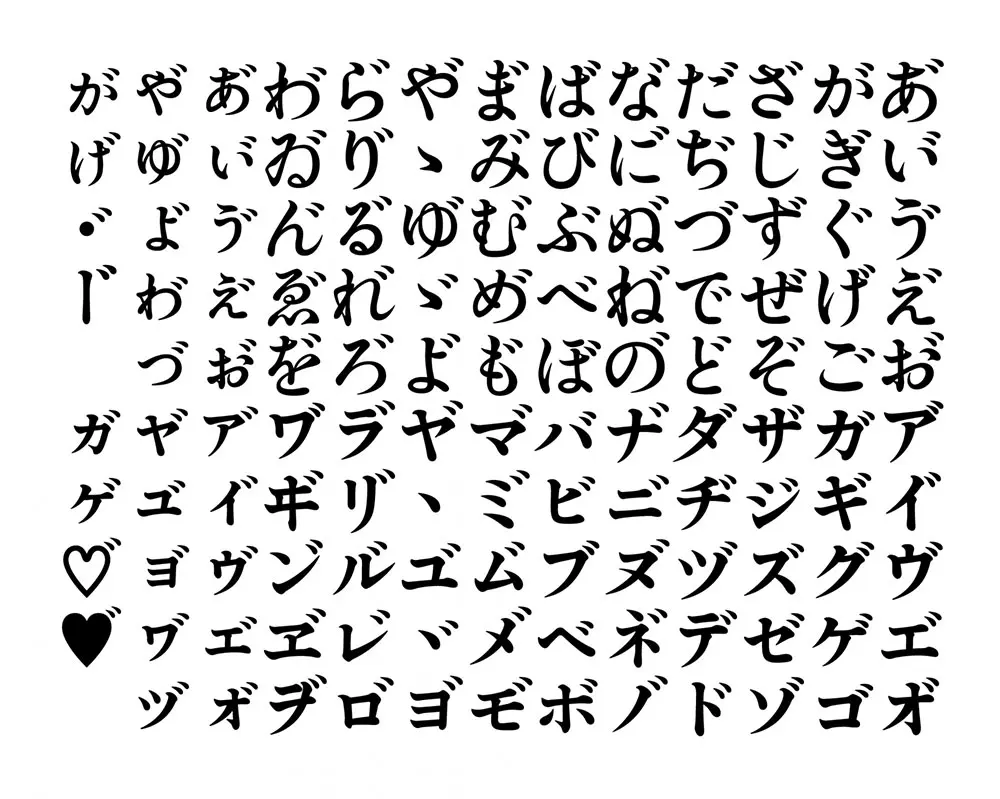 あ゙い゙ゔえ゙お゙
がぎぐげご
ざじずぜぞ
だぢづでど
な゙に゙ぬ゙ね゙の゙
ばびぶべぼ
ま゙み゙む゙め゙も゙
や゙ゝゆ゙ゞよ゙
ら゙り゙る゙れ゙ろ゙
わ゙ゐ゙ん゙ゑ゙を゙
ぁ゙ぃ゙ぅ゙ぇ゙ぉ゙
ゃ゙ゅ゙ょ゙ゎ゙っ゙
ゕ゙ゖ゙・゙ー゙
ア゙イ゙ヴエ゙オ゙
ガギグゲゴ
ザジズゼゾ
ダヂヅデド
ナ゙ニ゙ヌ゙ネ゙ノ゙
バビブベボ
マ゙ミ゙ム゙メ゙モ゙
ヤ゙ヽユ゙ヾヨ゙
ラ゙リ゙ル゙レ゙ロ゙
ヷヸン゙ヹヺ
ァ゙ィ゙ゥ゙ェ゙ォ゙
ャ゙ュ゙ョ゙ヮ゙ッ゙
ヵ゙ヶ゙♡゙♥゙